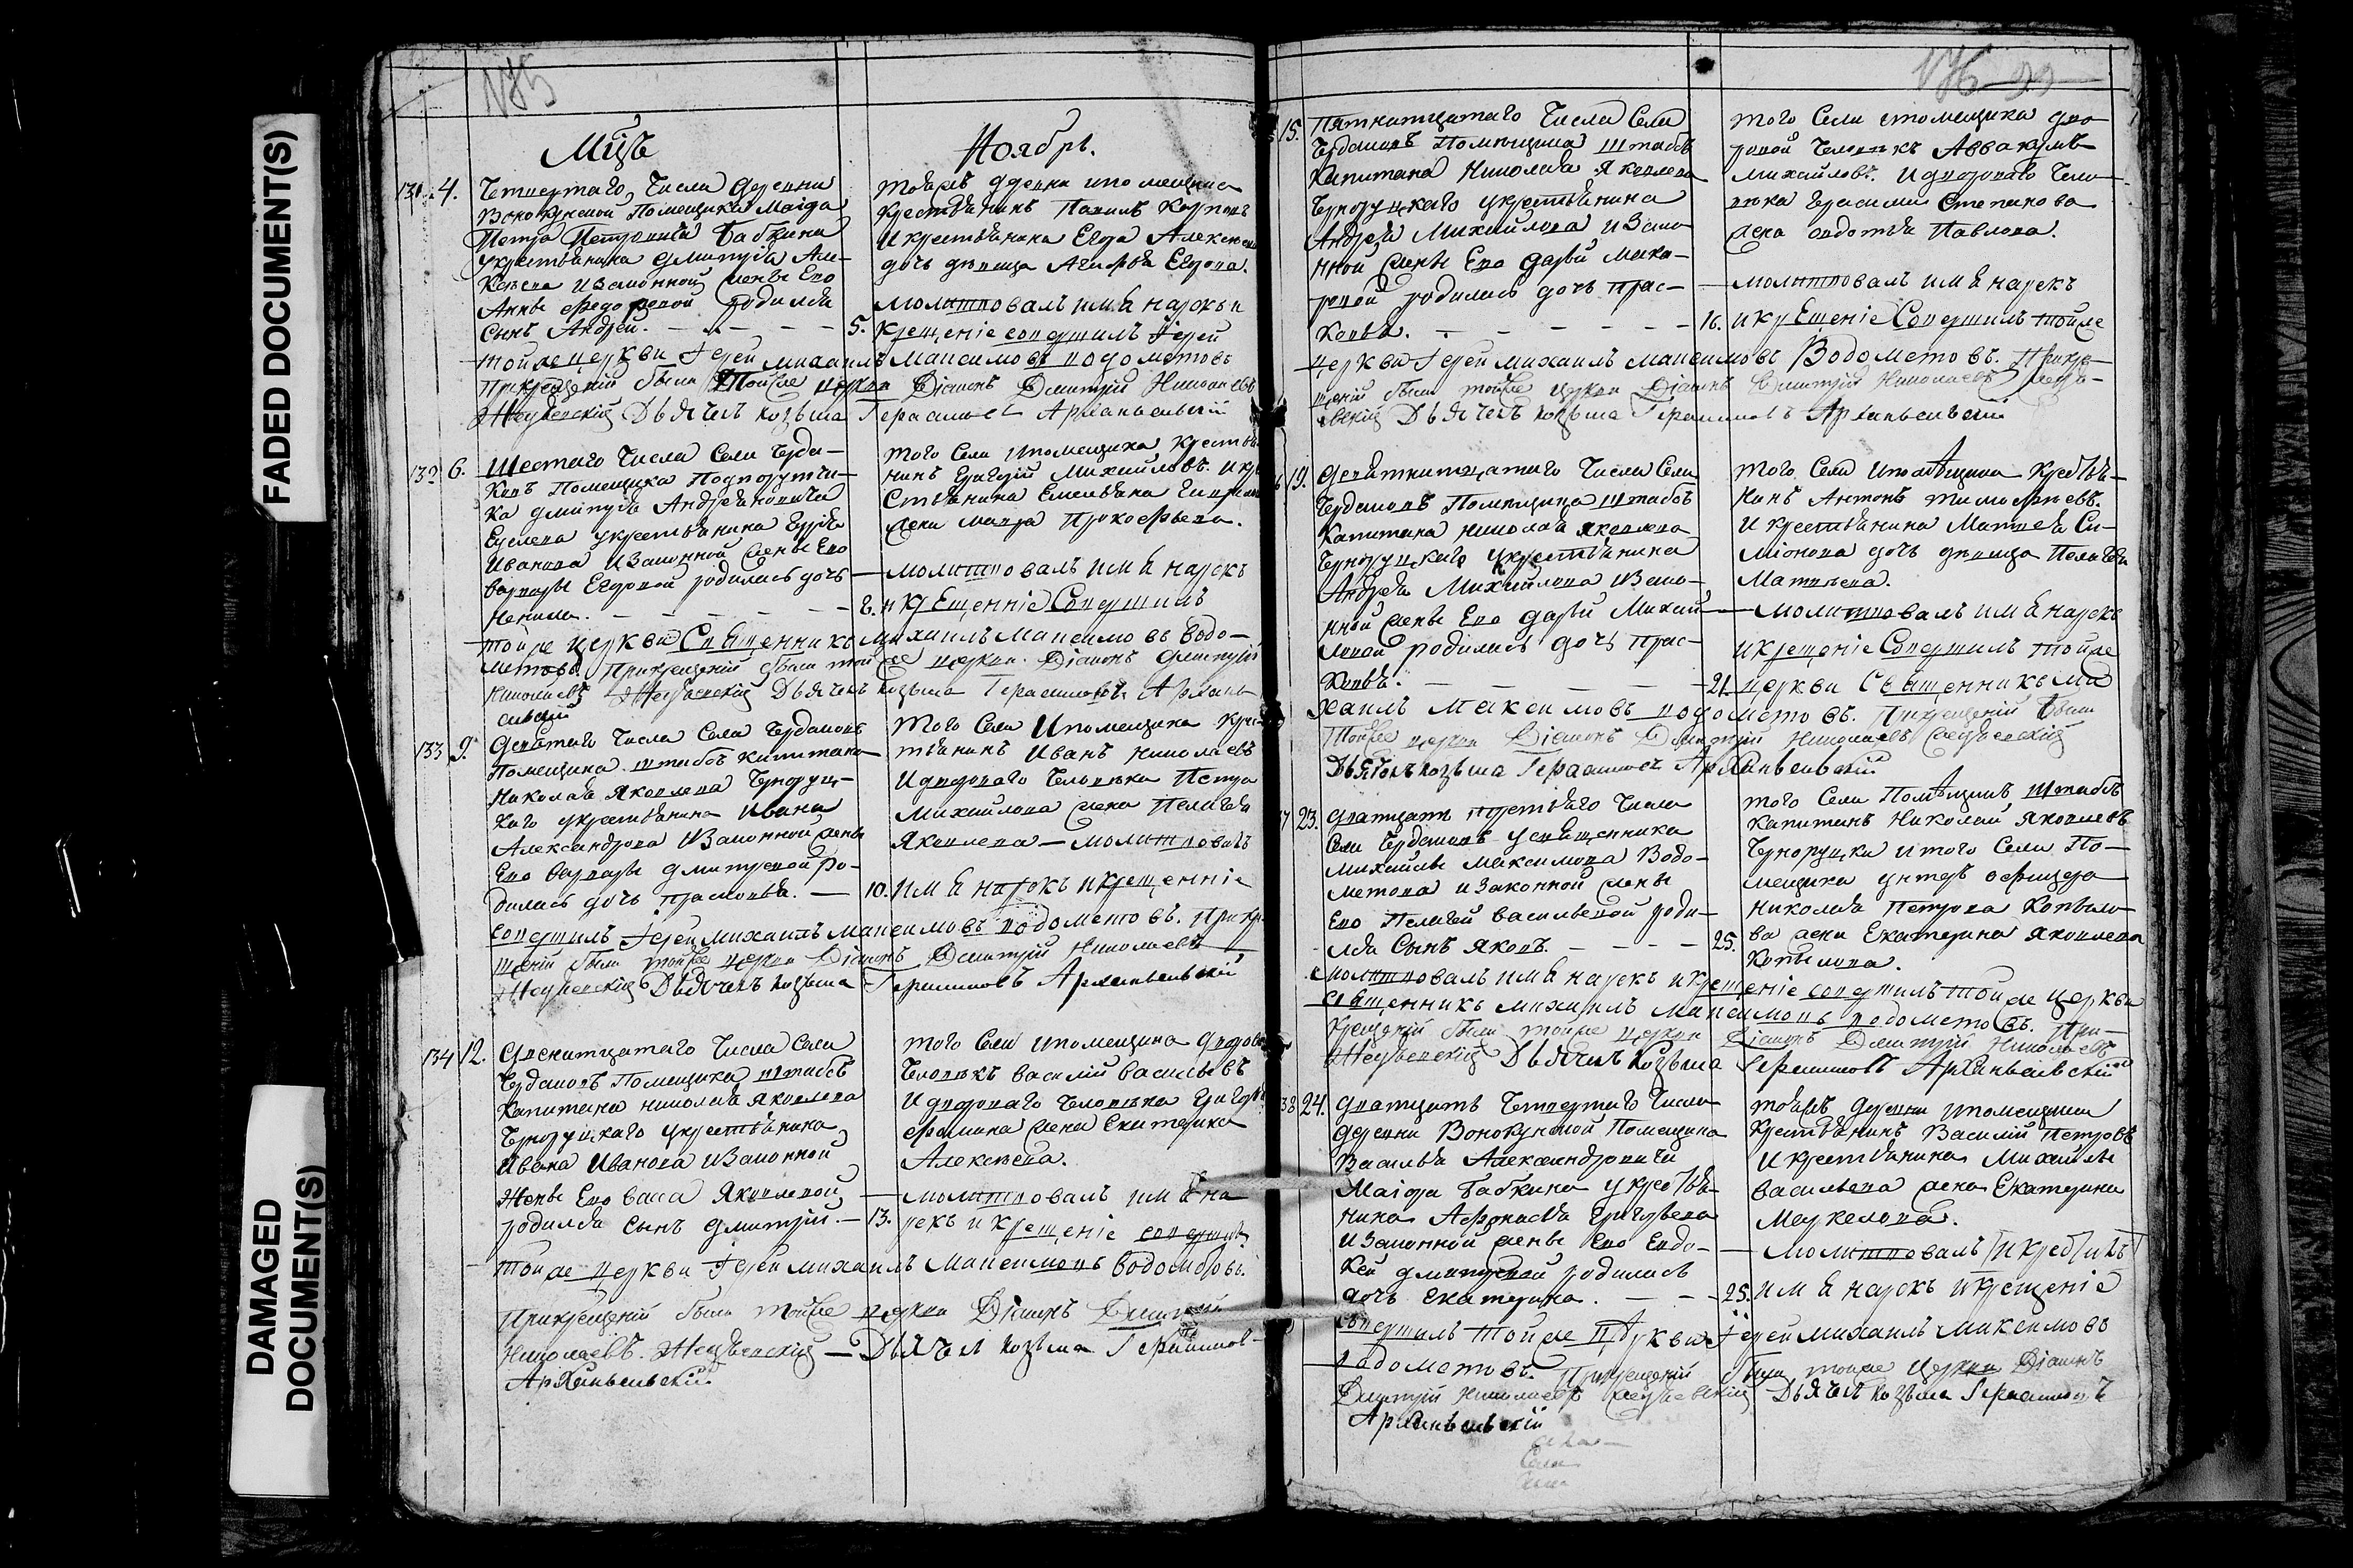 FADED DOCUMENT(S)
DAMAGED
DOCUMENT(S)
175
Мцъ
Ноябрь.
131. 4. Четвертаго Числа Деревни
Помещика Маіора
Петра Петровича Бабкина
укрестьянина Дмитрія Але-
изаконной жены Его
Анны Федоровой родился
сынъ Андрей.
тояжъ деревни ипомещика
Крестьянинъ Карповъ
Икрестьянина Егора
дочь девица Егорова.
молитвовалъ имя нарекъ и
5. Крещеніе совершилъ Іерей
тойже церкви Іерей михаилъ Максимовъ водометовъ
Прикрещеніи были Тойже церкви Діаконъ Дмитрій Николаевъ
Дьячекъ козьма Герасимовъ Архангельскій
132 6. Шестаго Числа Села
Помещика Подпорутчи-
ка Дмитрія Андреяновича
укрестьянина
Иванова изаконной жены Его
варвары Егоровой родилась дочь
того Села ипомещика Кресть
нинъ Григорій Михайловъ. икре
стьянина Емельяна
жена мавра Прокофьева.
молитвовалъ имя нарекъ
8. икрещенніе Совершилъ
тойже церкви Священникъ михаилъ Максимовъ водо-
метовъ. Прикрещеніи были тойже церкви Діаконъ Дмитрій
Николаевъ Дьячекъ козьма Герасимовъ Архань
ельскій
133 9. Девятаго Числа Села
Помещика штабсъ капитана
Николая Яковлева Черноруц-
каго укрестьянина Ивана
Александрова изаконной жены
Его варвары дмитревой ро-
дилась дочь прасковья.
того Села Ипомещика крес
тьянинъ Иванъ Николаевъ
Идвороваго человека Петра
Михайлова жена Пелагея
Яковлева — молитвовалъ
10. имя нарекъ икрещенніе
совершилъ Іерей михаилъ максимовъ водометовъ. Прикре
щеніи были тойже церкви Діаконъ Дмитрій Николаевъ
Дьячекъ козьма Герасимовъ Архангельскій
134 12. Двенатцатаго Числа Села
Помещика штабсъ
Капитана николая Яковлева
Черноруцкаго укрестьянина
Ивана Иванова изаконной
Жены Его Яковлевой
родился сынъ дмитрій.
того Села ипомещика дворов
человекъ василій васильевъ
Идвороваго человека Григорья
фомина жена Екатерина
Алексеева.
молитвовалъ имя на
13. рекъ икрещеніе совершилъ
тойже церкви Іерей михаилъ максимовъ водометовъ.
Прикрещеніи были тойже церкви Діаконъ Дмитрій
Николаевъ. Дьячекъ козьма Герасимовъ
Архангельскій.
176 99
15. Пятнатцатаго Числа Села
Помещика штабсъ
Капитана Николая Яковлева
Черноруцкаго укрестьянина
Андрея Михайлова изако-
нной жены Его дарьи
родилась дочь прас-
ковья.
того Села ипомещика дво-
ровой человекъ Аввакумъ
михайловъ. Идвороваго чело-
века Герасима Степанова
жена авдотья Павлова.
молитвовалъ имя нарекъ
16. икрещеніе Совершилъ тойже
церкви Іерей михаилъ максимовъ Водометовъ. Прикре-
щеніи были тойже церкви Діаконъ Дмитрій Николаевъ
Дьячекъ козьма Герасимовъ Архангельскій
19. Девятнатцатаго Числа Села
Помещика штабсъ
Капитана николая яковлева
Черноруцкаго укрестьянина
Андрея Михайлова изако-
нной жены Его дарьи Михай-
ловой родилась дочь прас-
ковья.
того Села ипомещика Крестья-
нинъ Антонъ тимофеевъ.
Икрестьянина Матвея Си-
міонова дочь девица Пелагея
Матвеева.
молитвовалъ имя нарекъ
икрещеніе Совершилъ тойже
21. церкви Священникъ ми
хаилъ максимовъ водометовъ. Прикрещеніи были
Тойже церкви Діаконъ Дмитрій Николаевъ
Дьячекъ козьма Герасимовъ Архангельскій
23. Дватцать третьяго Числа
Села усвященника
михайлы максимова Водо-
метова изаконной жены
Его Пелагеи васильевой роди-
лся Сынъ яковъ.
того Села Помещикъ штабсъ
капитанъ Николай Яковлевъ
итого Села По-
мещика унтеръ офицера
Николая Петрова Копыло-
25. ва жена Екатерина Яковлева
Копылова.
молитвовалъ имя нарекъ икрещеніе совершилъ тойже церкви
священникъ михаилъ максимовъ водометовъ. При-
крещеніи были тойже церкви Діаконъ Дмитрій Николаевъ
Дьячекъ козьма Герасимовъ Архангельскій
24. Дватцать Четвертаго Числа
деревни Помещика
Василья Александровича
Маіора Бабкина укрестья-
нина Афонасья Григорьева
изаконной жены Его Евдо-
кеи дмитревой родилась
дочь екатерина.
тояжъ деревни ипомещика
Крестьянинъ Василій Петровъ
Икрестьянина Михайлы
васильева жена Екатерина
Меркелова.
молитвовалъ
25. имя нарекъ икрещеніе
совершилъ тойже церкви Іерей михаилъ максимовъ
водометовъ. Прикрещеніи были тойже церкви Діаконъ
Дмитрій Николаевъ Дьячекъ козьма Герасимовъ
Архангельскій